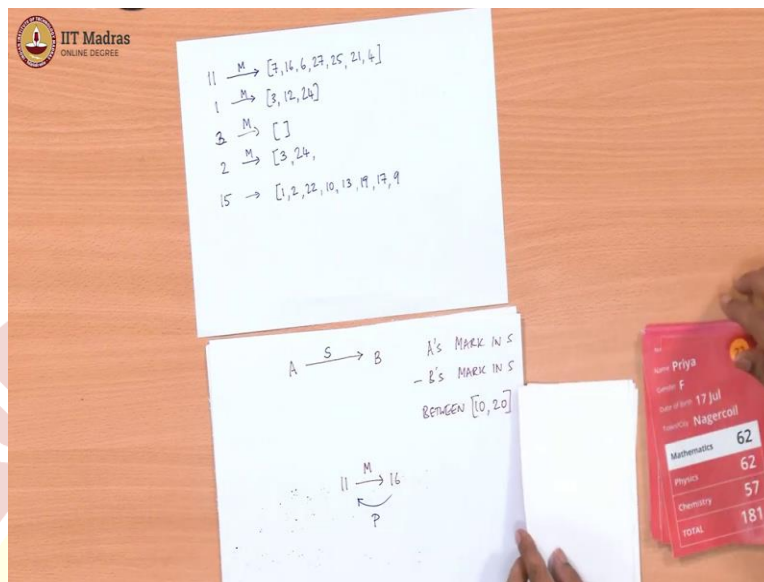 IIT Madras
ONLINE DEGREE
11 M→ [7, 16, 6, 27, 25, 21, 4]
1 M→ [3, 12, 24]
3 M→ []
2 M→ [3, 24,
15 → [1, 2, 22, 10, 13, 19, 17, 9
A S→ B
A's MARK IN S
- B's MARK IN S
BETWEEN [10, 20]
11 M→ 16
P
Name Priya
Gender F
Date of Birth 17 Jul
Town/City Nagercoil
Mathematics 62
Physics 62
Chemistry 57
TOTAL 181